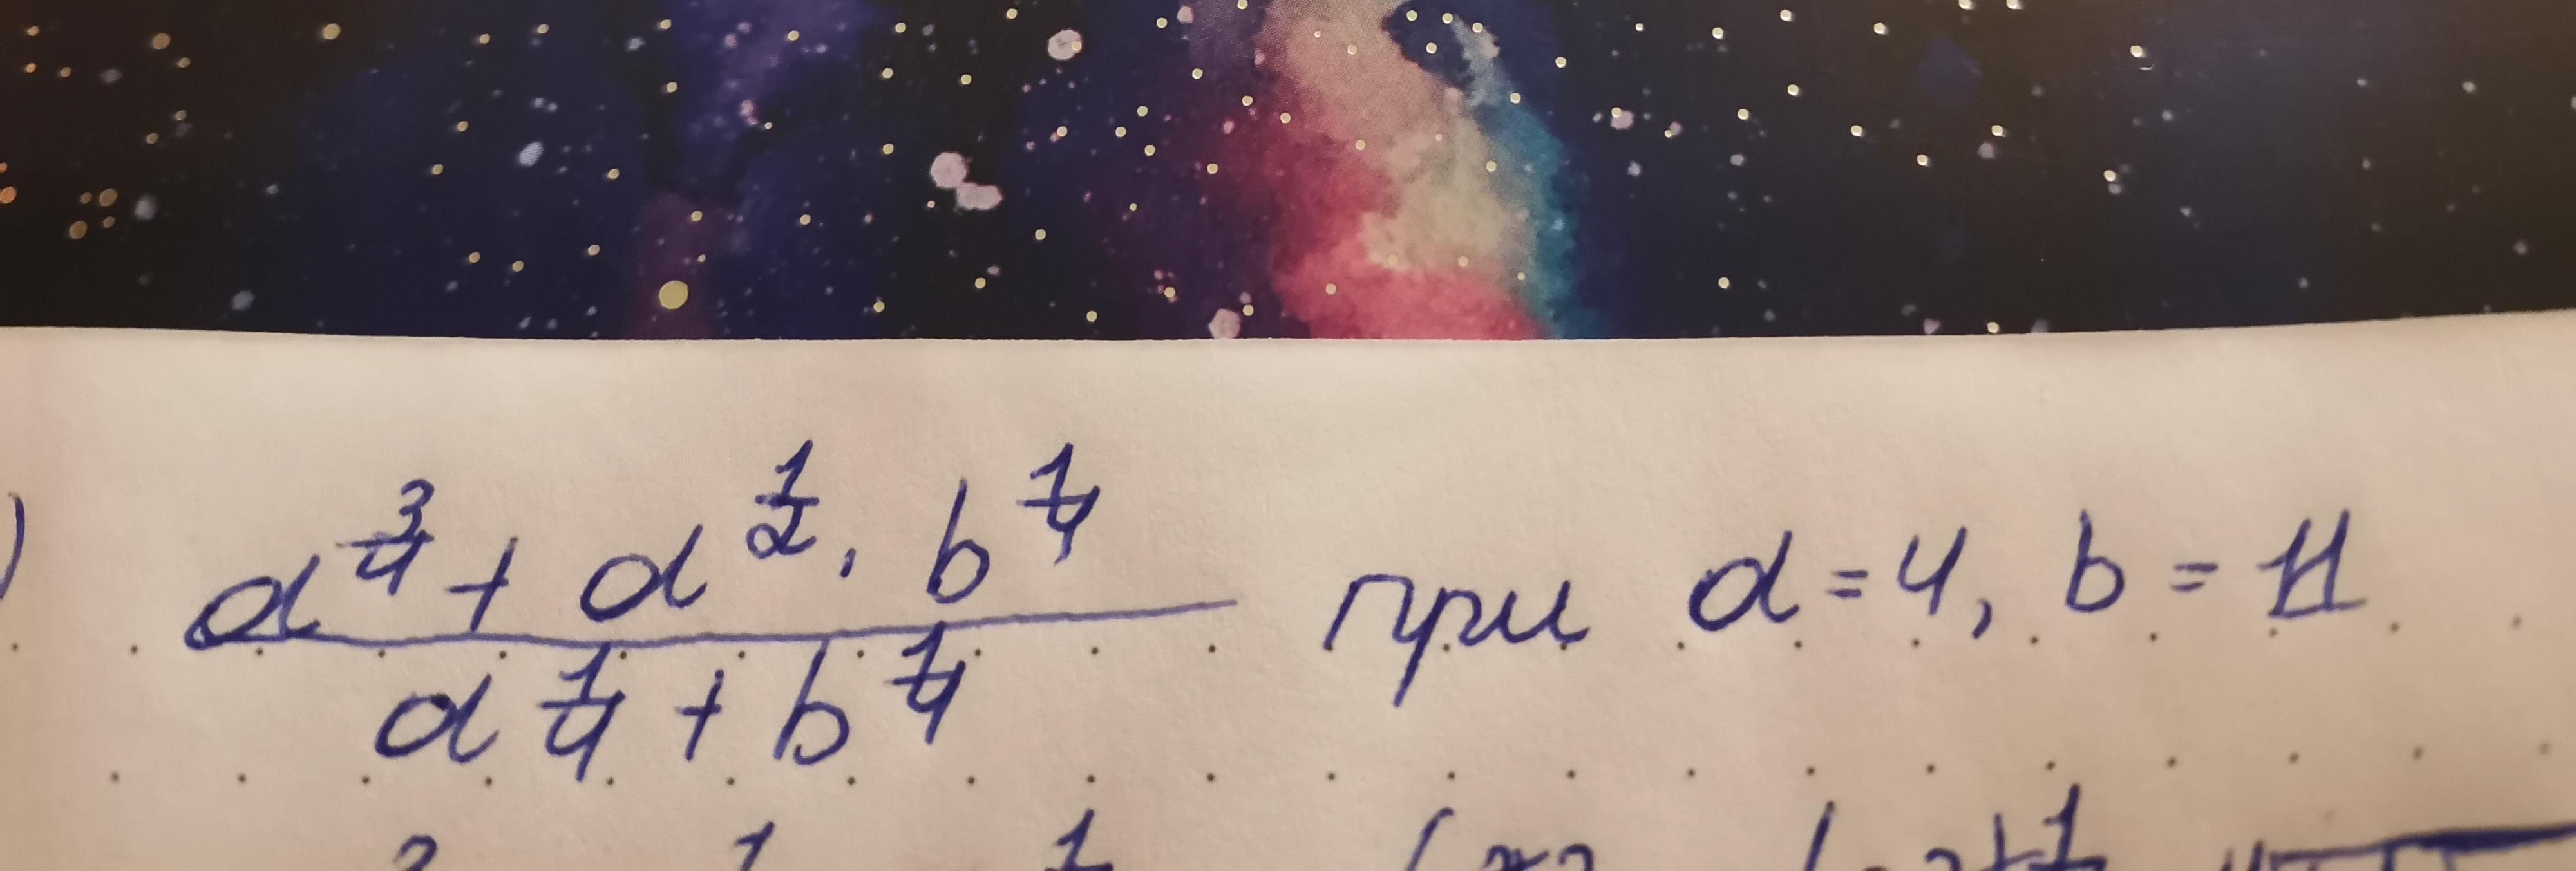 ) (a^(3/4) + a^(1/2) · b^(1/4)) / (a^(1/4) + b^(1/4)) при a = 4, b = 11